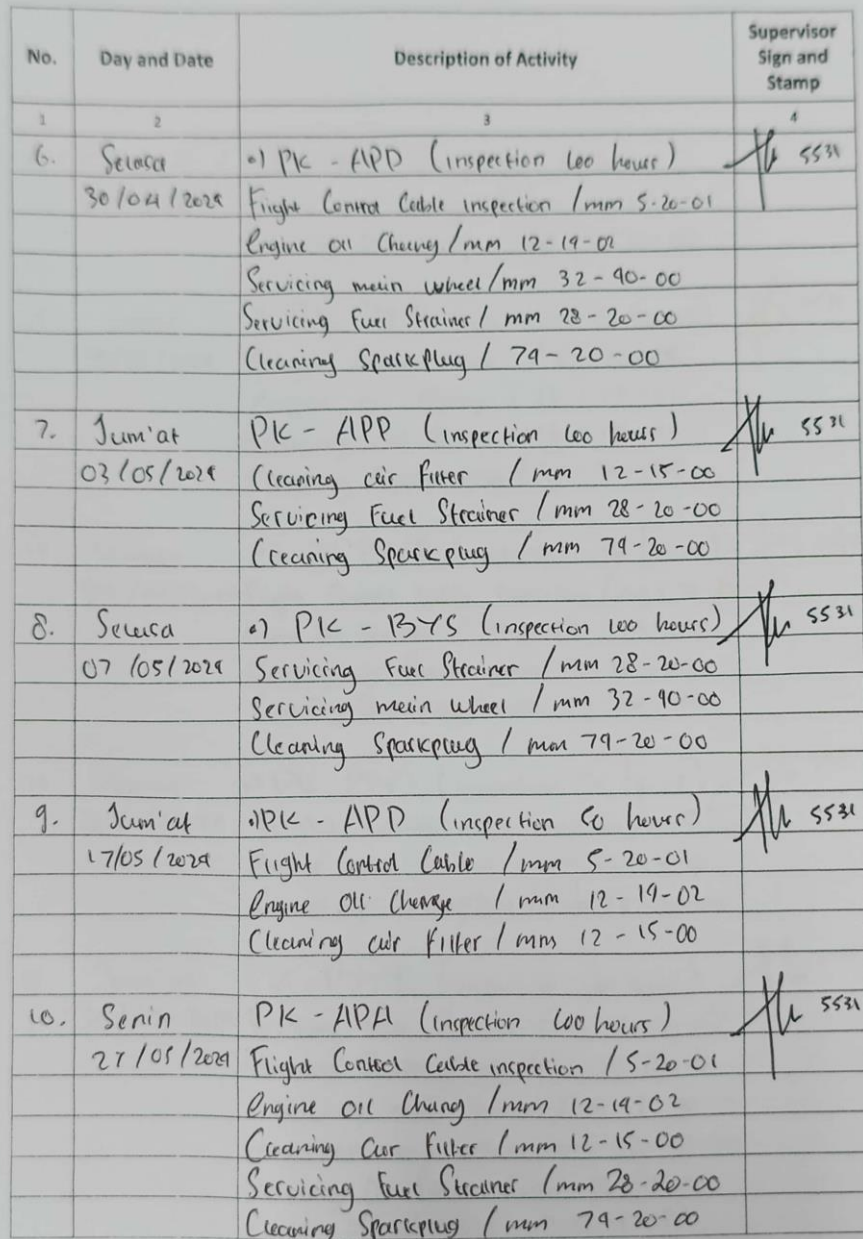 No. Day and Date Description of Activity Supervisor Sign and Stamp
1 2 3 4
6. Selasa •) PK - APD (inspection 100 hours) 5531
30/04/2024 Flight Control Cable inspection /mm 5-20-01
Engine oil Chang /mm 12-19-02
Servicing main wheel /mm 32-40-00
Servicing Fuel Strainer / mm 28-20-00
Cleaning Sparkplug / 74-20-00
7. Jum'at PK - APP (inspection 100 hours) 5531
03/05/2024 Cleaning air Filter / mm 12-15-00
Servicing Fuel Strainer / mm 28-20-00
Cleaning Sparkplug / mm 74-20-00
8. Selasa •) PK - BYS (inspection 100 hours) 5531
07/05/2024 Servicing Fuel Strainer / mm 28-20-00
Servicing main wheel / mm 32-40-00
Cleaning Sparkplug / mm 74-20-00
9. Jum'at •) PK - APD (inspection 50 hours) 5531
17/05/2024 Flight Control Cable / mm 5-20-01
Engine Oil Change / mm 12-19-02
Cleaning air Filter / mm 12-15-00
10. Senin PK - APA (inspection 100 hours) 5531
27/05/2024 Flight Control Cable inspection / 5-20-01
Engine Oil Chang / mm 12-19-02
Cleaning air Filter / mm 12-15-00
Servicing Fuel Strainer / mm 28-20-00
Cleaning Sparkplug / mm 74-20-00